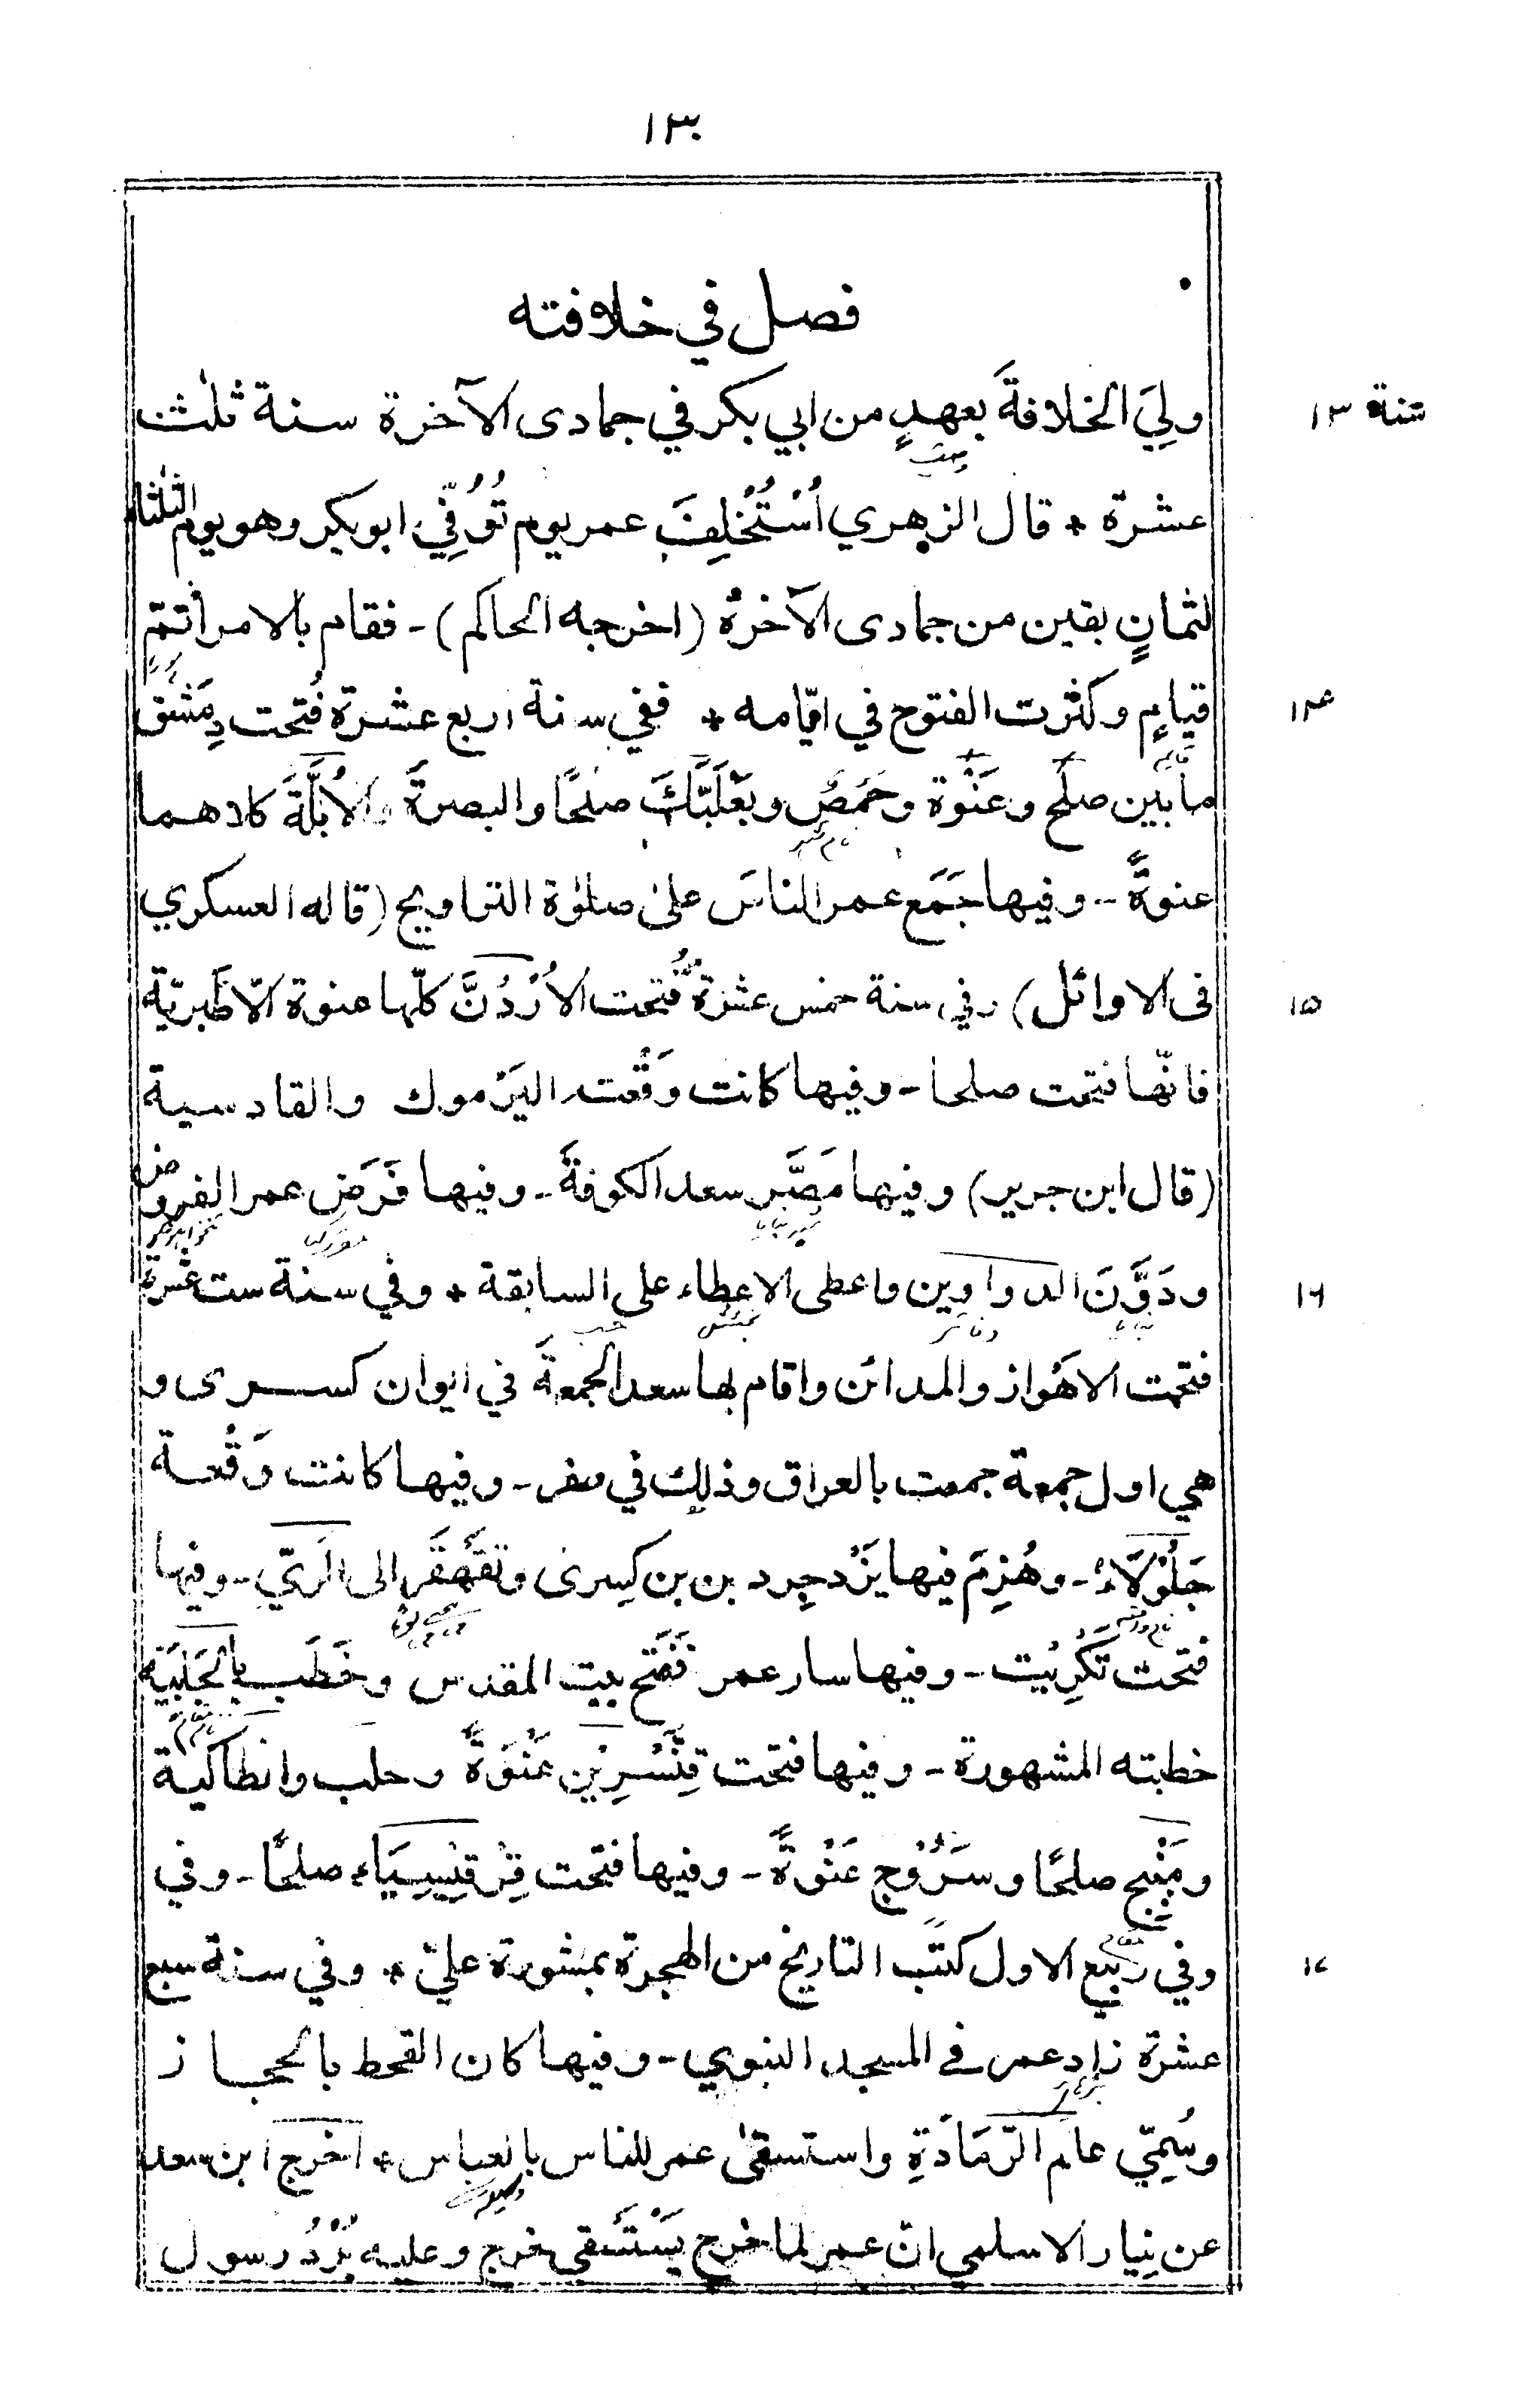 ١٣٠
فصل في خلافته
ولِيَ الخلافةَ بعهدٍ من ابي بكر في جمادى الآخرة سنة ثلٰث
سنة ١٣
عشرة * قال الزهري اُسْتُخْلِفَ عمر يوم تُوُفِّيَ ابو بكر وهو يوم الثلٰثاء
لثمانٍ بقين من جمادى الآخرة (اخرجه الحاكم) - فقام بالامر أتمّ
قيامٍ وكثرت الفتوح في ايّامه * ففي سنة اربع عشرة فُتحت دِمَشْق
١٤
ما بين صلح وعَنْوة وحَمْصُ وبَعْلَبَّكَ صلحًا والبصرةَ والاُبُلَّةَ كلاهما
عنوةً - وفيها جَمَع عمر الناسَ علىٰ صلٰوة التراويح (قاله العسكري
فى الاوائل) وفي سنة خمس عشرة فُتحت الاُرْدُنَّ كلّها عنوة الّا طَبَريّة
١٥
فانّها فتحت صلحا - وفيها كانت وَقْعت اليَرْموك والقادسية
(قال ابن جرير) وفيها مَصَّر سعد الكوفةَ - وفيها فَرَض عمر الفروض
ودَوَّنَ الدواوين واعطى الاعطاء على السابقة * وفي سنة ست عشرة
١٦
فتحت الاهْواز والمدائن واقام بها سعد الجمعةَ في ايوان كسرى و
هي اول جمعة جمعت بالعراق وذلك في صفر - وفيها كانت وَقْعة
جَلُوْلَاءَ - وهُزِمَ فيها يَزْدجِرد بن بن كِسرىٰ وتَقَهْقَر الى الرَيّ - وفيها
فتحت تَكْرِيْت - وفيها سار عمر فَفَتح بيت المقدس وخَطَب بالجَابِيَة
خطبته المشهورة - وفيها فتحت قِنَّسْرِيْن عَنْوَةً وحلب وانطاكية
ومَنْبِج صلحًا وسَرُوْج عَنْوةً - وفيها فتحت قِرْقِيْسِيَاء صلحًا - وفي
وفي ربيع الاول كتب التاريخ من الهجرة بمشورة عليّ * وفي سنة سبع
١٧
عشرة زاد عمر في المسجد النبوي - وفيها كان القحط بالحجاز
وسُمِّي عام الرَّمَادَةِ واستسقىٰ عمر للناس بالعباس * اخرج ابن سعد
عن نِيار الاسلمي انّ عمر لما خرج يَسْتَسْقي خرج وعليه بُرْدُ رسول